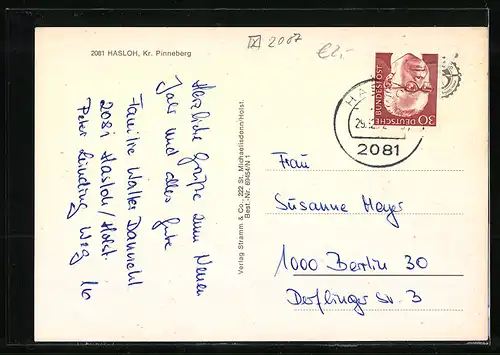 2081 HASLOH, Kr. Pinneberg
2087
€2,-
Herzliche Grüße zum Neuen
Jahr und alles gute
Familie Walter
2081 Hasloh/Holst.
Peter Lünding Weg 16
Verlag Stramm & Co., 222 St. Michaelisdonn/Holst.
Best.-Nr. 69454/N 1
DEUTSCHE BUNDESPOST
30
HA
29.
2081
Frau
Susanne Meyer
1000 Berlin 30
Derflinger Str. 3